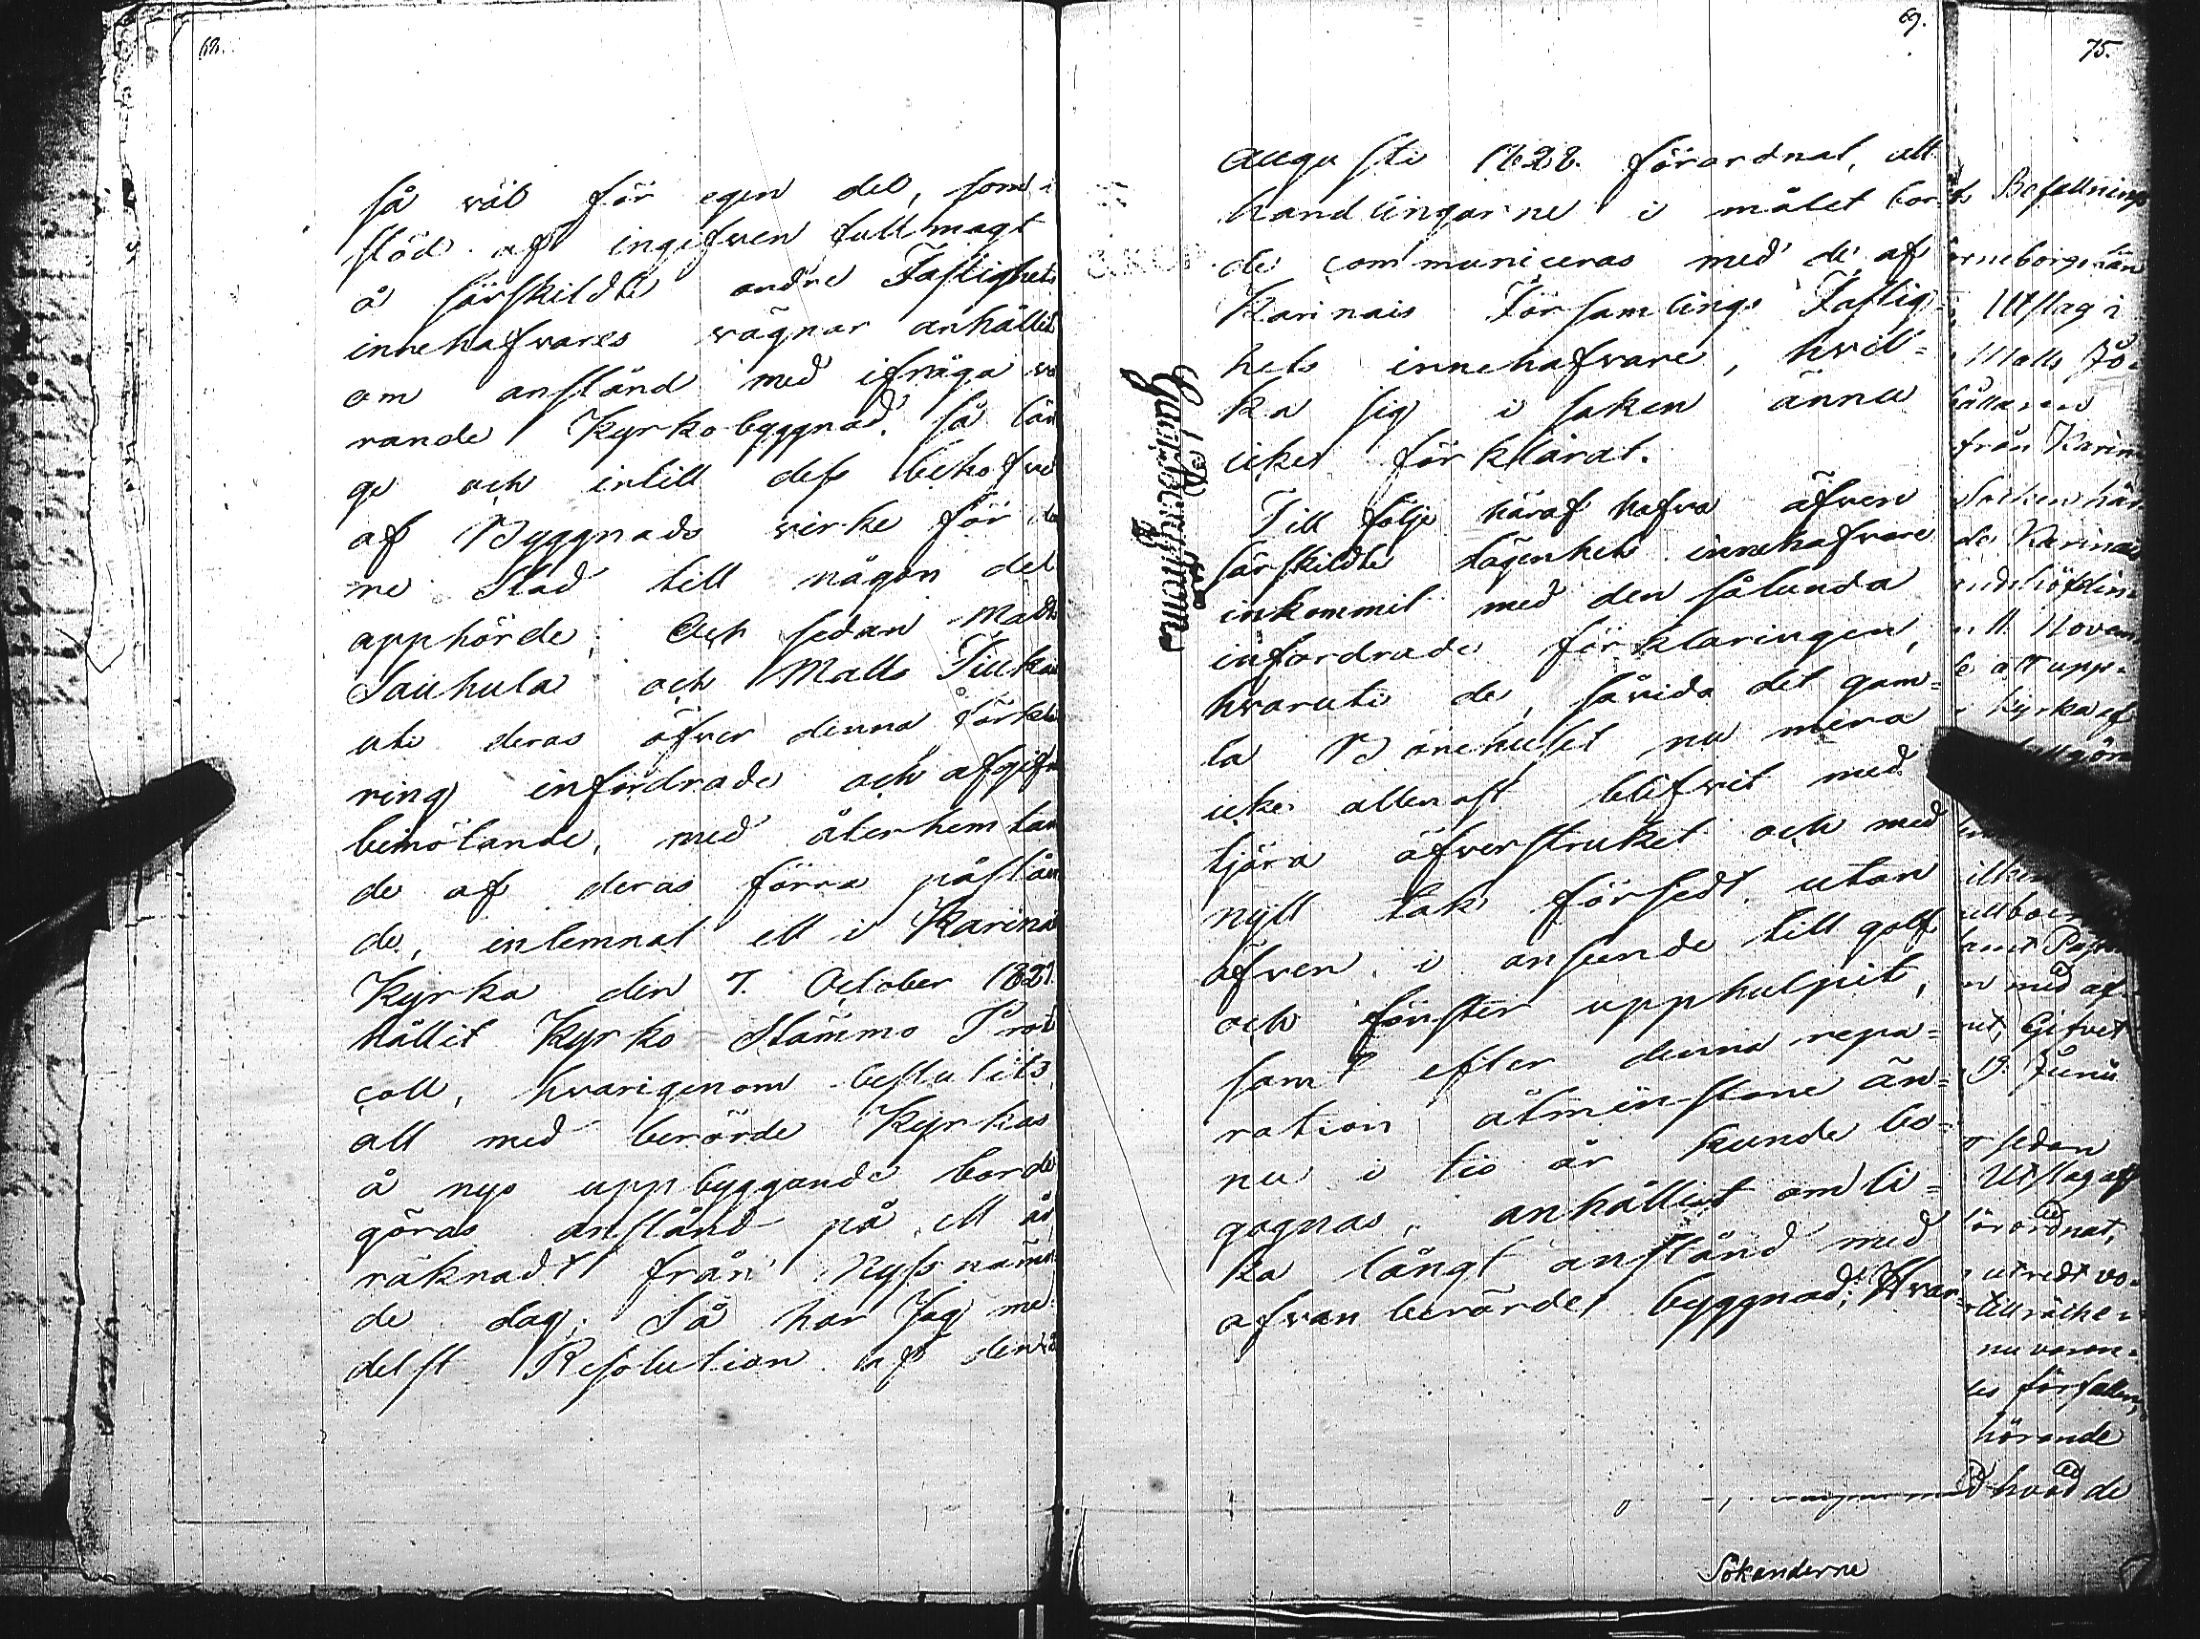 68.
så väl för egen del, som i
stöd af ingifven fullmagt
å särskildte andre Fastighets
innehafvares vägnar anhållit
om anstånd med ifråga va
rande Kyrkobyggnad, så län
ge och intill dess behofvet
af Byggnads virke för
ne Stad till någon del
upphörde; Och sedan Matts
Sauhula och Matts Tiuka
uti deras öfver denna förkla
ring infordrade och afgifne
bemötande, med återhemtan
de af deras förra påstån
de, inlemnat ett i Karinais
Kyrka den 7. October 1827.
hållit Kyrko-Stämmo Proto
coll, hvarigenom beslutits
att med berörde Kyrkas
å nyo uppbyggande borde
göras anstånd på ett år
räknadt från nyssnämn
de dag; Så har Jag me
delst Resolution af den
69.
Augusti 1828. förordnat, att
handlingarne i målet bor
de communiceras med de af
Karinais Församlings Fastig-
hets innehafvare, hvil-
ka sig i saken ännu
icke förklarat.
Till följe häraf hafva äfven
särskildte lägenhets innehafvare
inkommit med den sålunda
infordrade förklaringen,
hvaruti de, såvida det gam-
la Bönehuset nu mera
icke allenast blifvit med
tjära öfverstruket och med
nytt tak försedt, utan
äfven i anseende till golf
och fönster upphulpit,
samt efter denna repa-
ration åtminstone än-
nu i tio år kunde be-
gagnas, anhållit om li-
ka långt anstånd med
ofvanberörde byggnad; Hvar-
75.
Befallnings
örneborgs län
Utslag i
Matts Jo-
hållaren
från Karin
Socken här
de Karinais
ndshöfdin
11. Novem
att upp-
Kyrka af
med af-
Gifvet
19. Junii
sedan
Utslag af
förordnat,
utredt vo-
tillräcke-
nu varan-
förfallen,
hörande
hvad de
Sökanderne